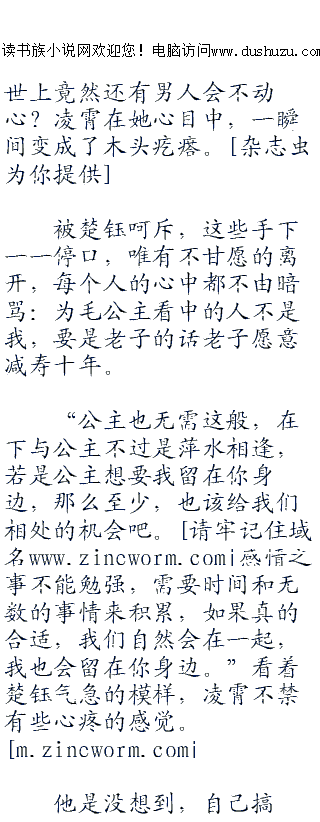 读书族小说网欢迎您！电脑访问www.dushuzu.com
世上竟然还有男人会不动
心？凌霄在她心目中，一瞬
间变成了木头疙瘩。[杂志虫
为你提供]
被楚钰呵斥，这些手下
一一停口，唯有不甘愿的离
开，每个人的心中都不由暗
骂：为毛公主看中的人不是
我，要是老子的话老子愿意
减寿十年。
“公主也无需这般，在
下与公主不过是萍水相逢，
若是公主想要我留在你身
边，那么至少，也该给我们
相处的机会吧。[请牢记住域
名www.zincworm.com|感情之
事不能勉强，需要时间和无
数的事情来积累，如果真的
合适，我们自然会在一起，
我也会留在你身边。”看着
楚钰气急的模样，凌霄不禁
有些心疼的感觉。
[m.zincworm.com|
他是没想到，自己搞